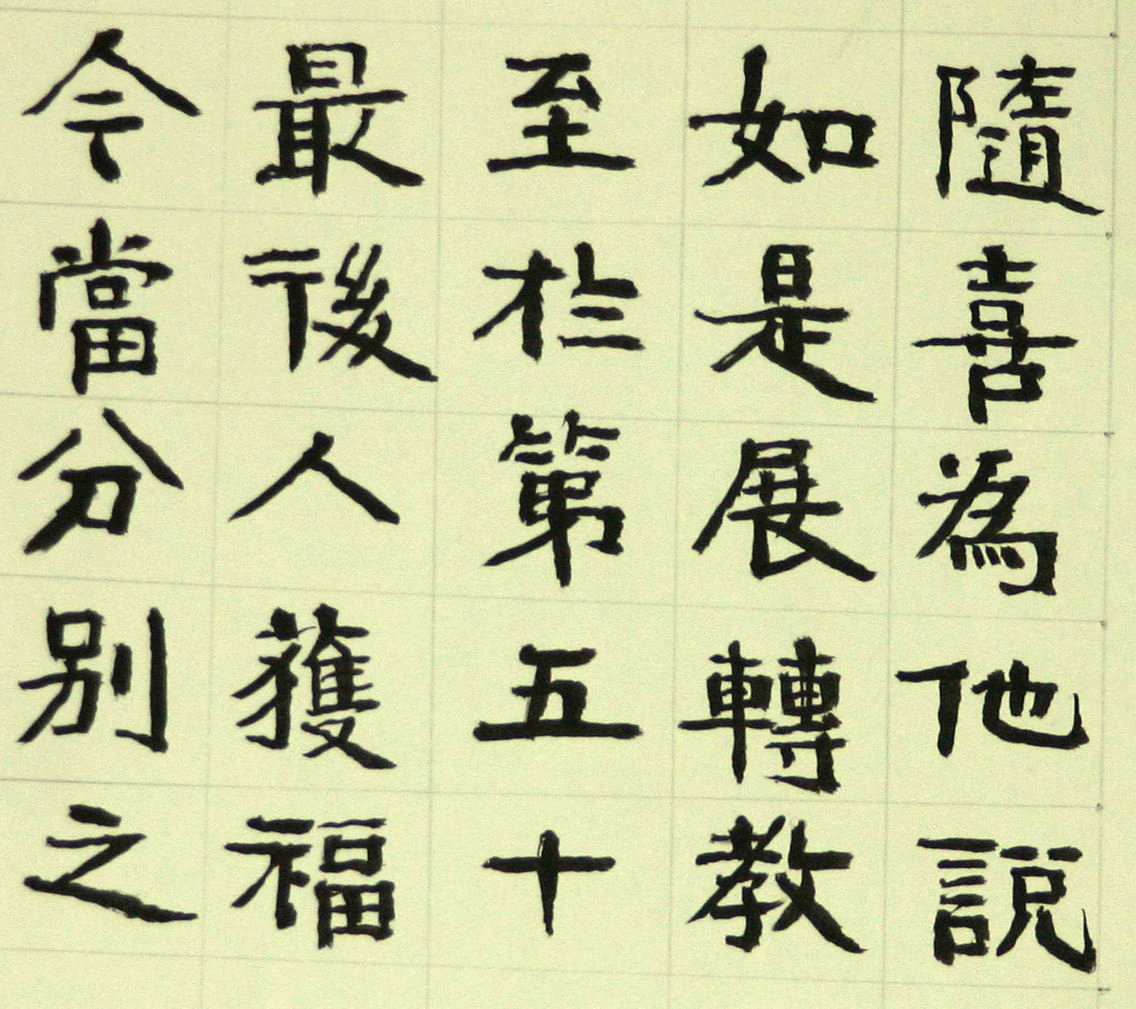 隨喜為他說
如是展轉教
至於第五十
最後人獲福
今當分別之